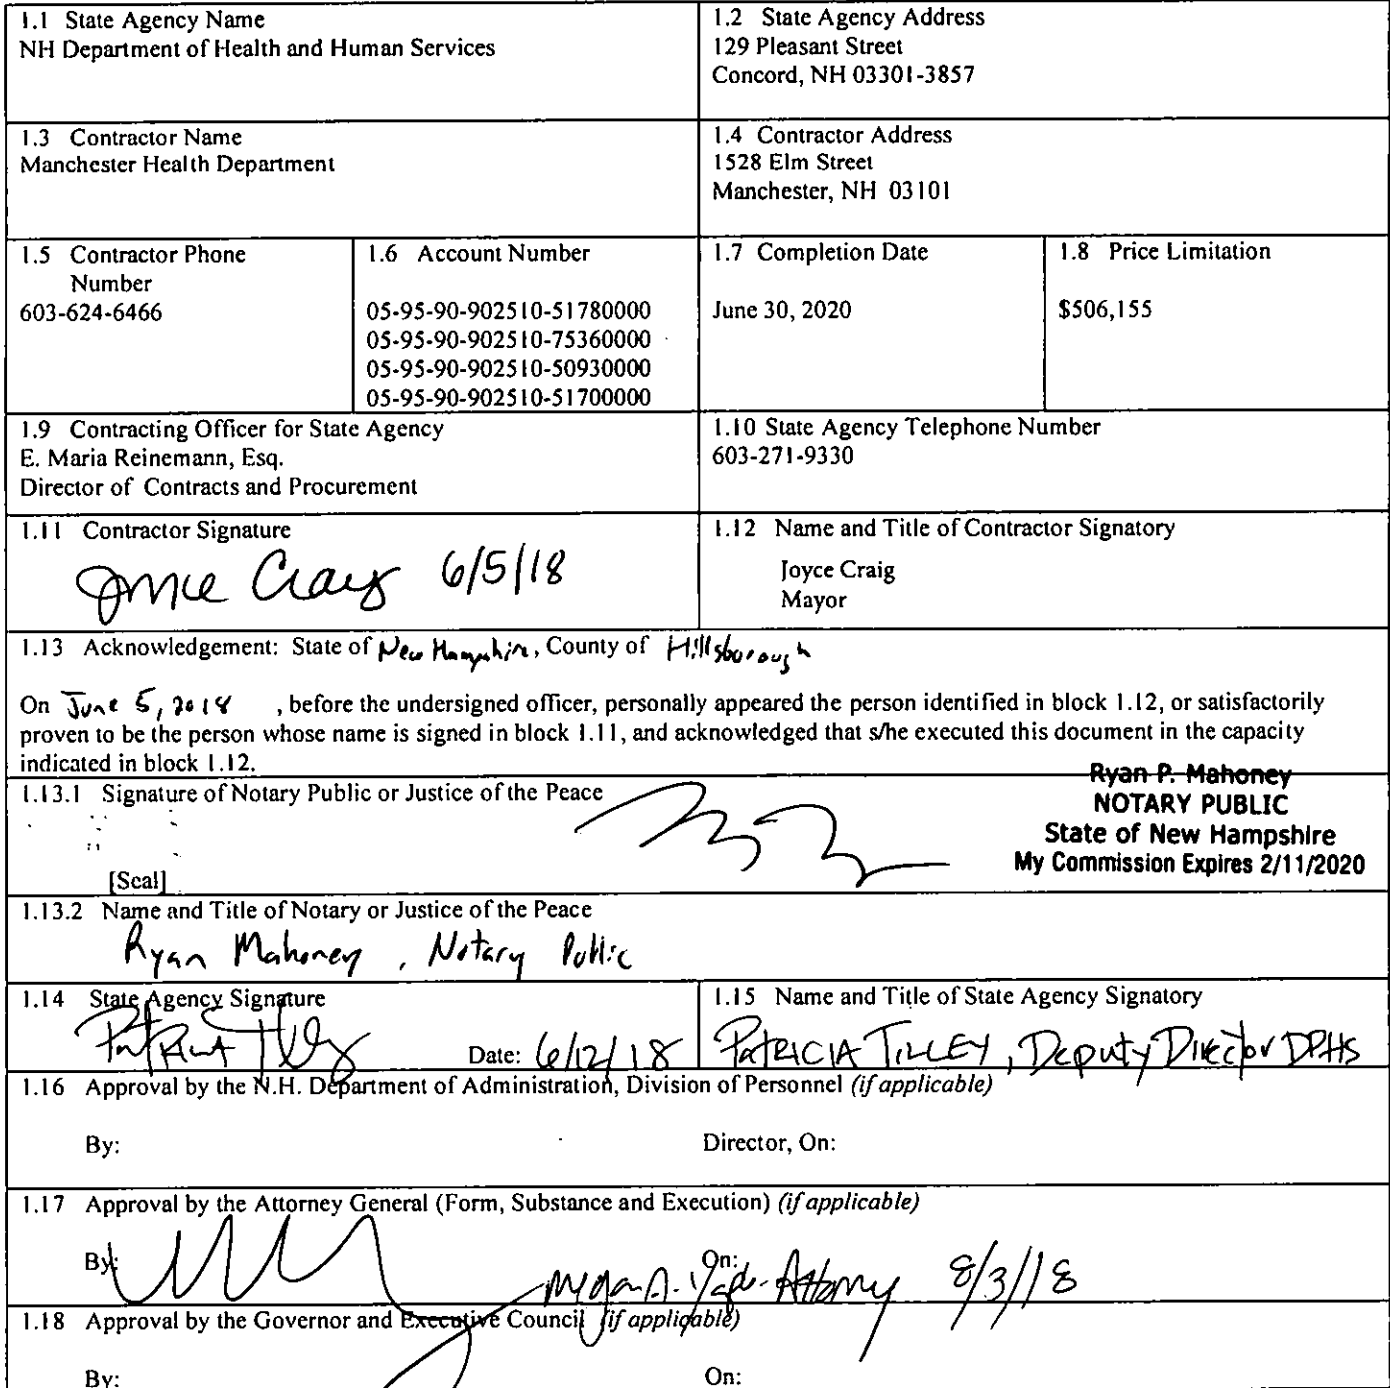 1.1 State Agency Name
NH Department of Health and Human Services
1.2 State Agency Address
129 Pleasant Street
Concord, NH 03301-3857
1.3 Contractor Name
Manchester Health Department
1.4 Contractor Address
1528 Elm Street
Manchester, NH 03101
1.5 Contractor Phone
Number
603-624-6466
1.6 Account Number
05-95-90-902510-51780000
05-95-90-902510-75360000
05-95-90-902510-50930000
05-95-90-902510-51700000
1.7 Completion Date
June 30, 2020
1.8 Price Limitation
$506,155
1.9 Contracting Officer for State Agency
E. Maria Reinemann, Esq.
Director of Contracts and Procurement
1.10 State Agency Telephone Number
603-271-9330
1.11 Contractor Signature
Joyce Craig 6/5/18
1.12 Name and Title of Contractor Signatory
Joyce Craig
Mayor
1.13 Acknowledgement: State of New Hampshire, County of Hillsborough
On June 5, 2018 , before the undersigned officer, personally appeared the person identified in block 1.12, or satisfactorily
proven to be the person whose name is signed in block 1.11, and acknowledged that s/he executed this document in the capacity
indicated in block 1.12.
1.13.1 Signature of Notary Public or Justice of the Peace
[Seal]
Ryan P. Mahoney
NOTARY PUBLIC
State of New Hampshire
My Commission Expires 2/11/2020
1.13.2 Name and Title of Notary or Justice of the Peace
Ryan Mahoney, Notary Public
1.14 State Agency Signature
Date: 6/12/18
1.15 Name and Title of State Agency Signatory
PATRICIA TILLEY, Deputy Director DPHS
1.16 Approval by the N.H. Department of Administration, Division of Personnel (if applicable)
By:
Director, On:
1.17 Approval by the Attorney General (Form, Substance and Execution) (if applicable)
By:
On:
Megan A. Attorney 8/3/18
1.18 Approval by the Governor and Executive Council (if applicable)
By:
On: